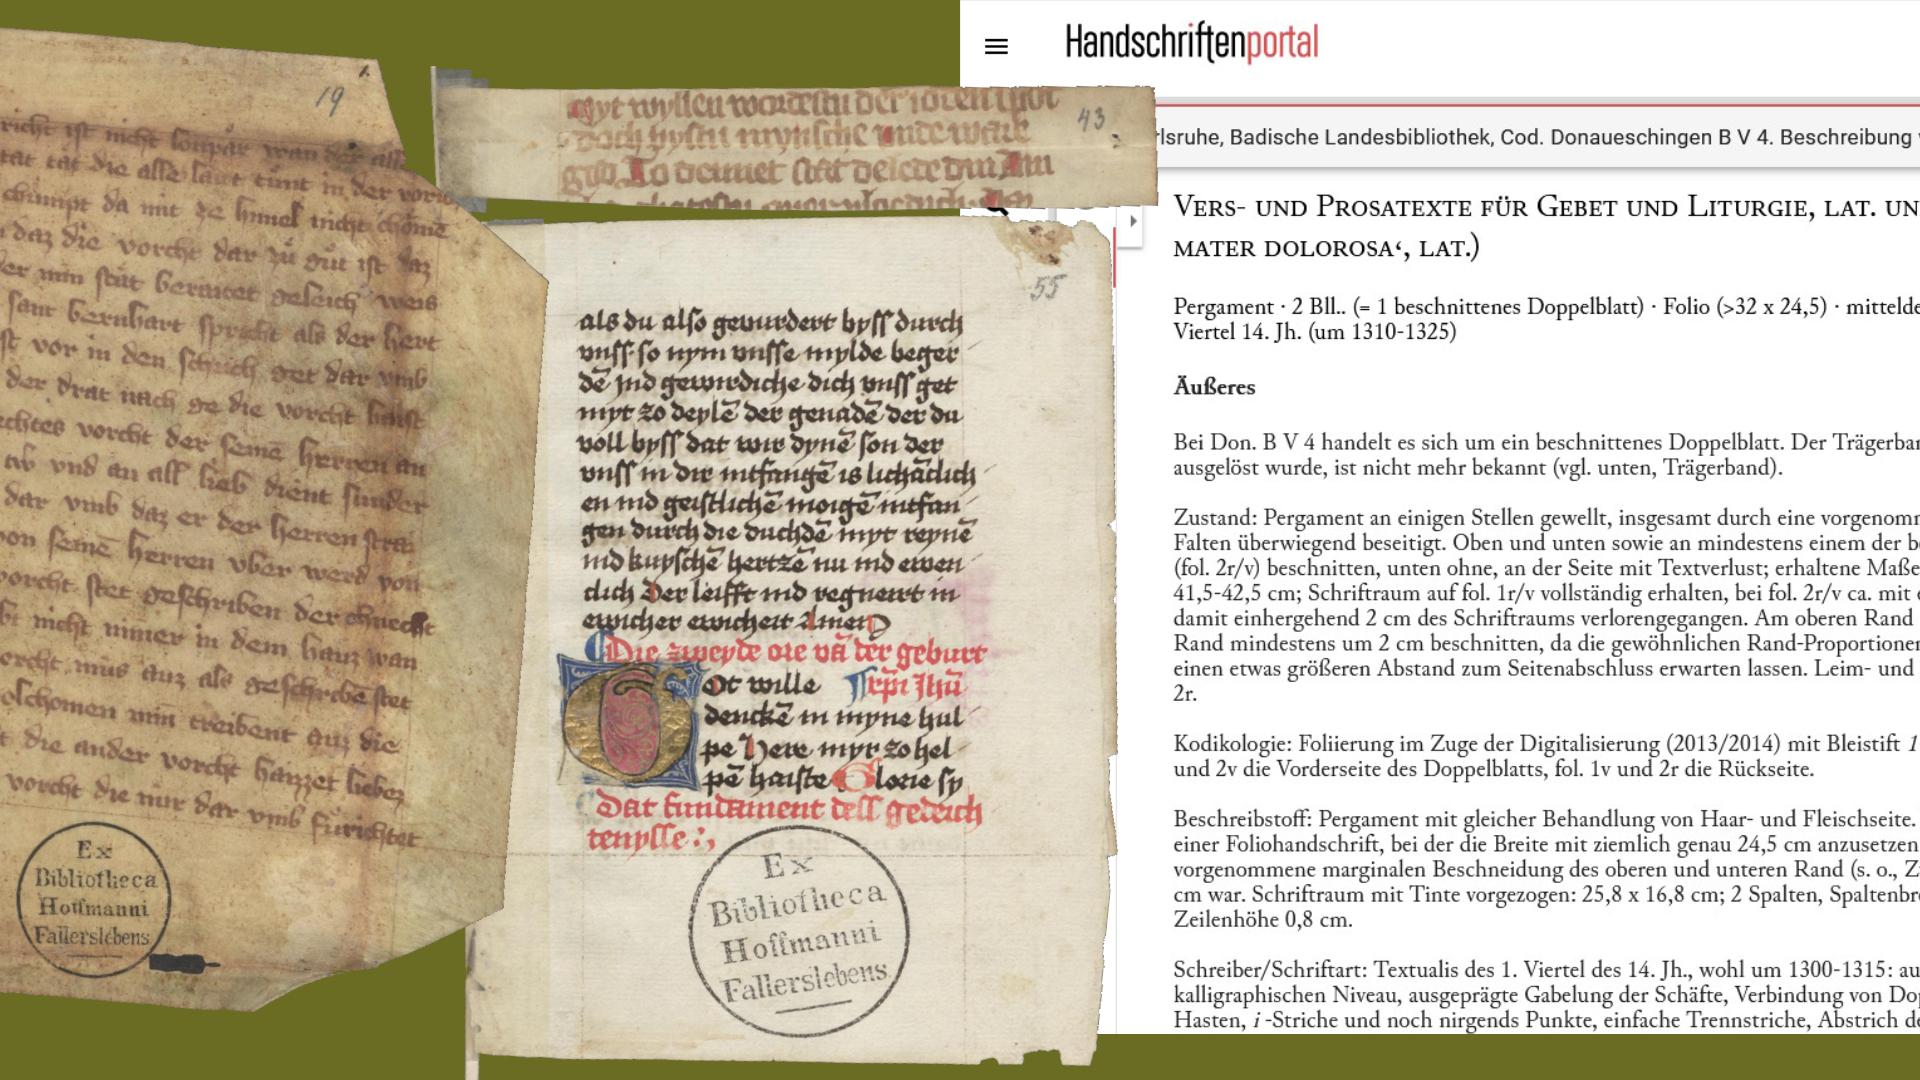 19
richt ist nicht
tät die alle
da mit ze himel nicht chöme
daz die vorcht dar zů gůt ist daz
geleich weis
sant bernhart spricht als der hert
vor in den
der drat nach ge die vorcht
vorcht der seinē herren an
vnd an all lieb dient sunder
dar vmb daz er der herren
von seinē herren vber werd von
vorcht stet geschriben der chnecht
nicht nimer in dem hauz wan
vorcht můs auz als geschribē stet
min treibent auz die
die ander vorcht
vorcht die nur dar vmb fürichtet
Ex
Bibliotheca
Hoffmanni
Fallerslebens
43
myt wyllen
doch bystu mynsche vnde ware
god
55
als du also gevurdert byss durch
vnss so nym vnsse mylde beger
dē ind gewirdiche dich vnss get
myt zo deylē der genadē der du
voll byss dat wir dynē son der
vnss in dir intfangē is lichālich
en ind geistlichē moigē intfan
gen durch die duchdē myt reynē
ind kuyschē hertzē nu ind ewen
clich Der leifft ind regneirt in
ewicher ewicheit Amen
Die zweyde ore vā der geburt
Got wille xp̄i Jhū
denckē in myne hul
pe Here myr zo hel
pē haiste Glorie sy
Dat fundament dess gedeich
tenysse
Ex
Bibliotheca
Hoffmanni
Fallerslebens
Handschriftenportal
lsruhe, Badische Landesbibliothek, Cod. Donaueschingen B V 4. Beschreibung
Vers- und Prosatexte für Gebet und Liturgie, lat. un
mater dolorosa‘, lat.)
Pergament · 2 Bll.. (= 1 beschnittenes Doppelblatt) · Folio (>32 x 24,5) · mittelde
Viertel 14. Jh. (um 1310-1325)
Äußeres
Bei Don. B V 4 handelt es sich um ein beschnittenes Doppelblatt. Der Trägerban
ausgelöst wurde, ist nicht mehr bekannt (vgl. unten, Trägerband).
Zustand: Pergament an einigen Stellen gewellt, insgesamt durch eine vorgenomm
Falten überwiegend beseitigt. Oben und unten sowie an mindestens einem der be
(fol. 2r/v) beschnitten, unten ohne, an der Seite mit Textverlust; erhaltene Maße
41,5-42,5 cm; Schriftraum auf fol. 1r/v vollständig erhalten, bei fol. 2r/v ca. mit
damit einhergehend 2 cm des Schriftraums verlorengegangen. Am oberen Rand
Rand mindestens um 2 cm beschnitten, da die gewöhnlichen Rand-Proportionen
einen etwas größeren Abstand zum Seitenabschluss erwarten lassen. Leim- und
2r.
Kodikologie: Foliierung im Zuge der Digitalisierung (2013/2014) mit Bleistift 1
und 2v die Vorderseite des Doppelblatts, fol. 1v und 2r die Rückseite.
Beschreibstoff: Pergament mit gleicher Behandlung von Haar- und Fleischseite.
einer Foliohandschrift, bei der die Breite mit ziemlich genau 24,5 cm anzusetzen
vorgenommene marginalen Beschneidung des oberen und unteren Rand (s. o., Z
cm war. Schriftraum mit Tinte vorgezogen: 25,8 x 16,8 cm; 2 Spalten, Spaltenbre
Zeilenhöhe 0,8 cm.
Schreiber/Schriftart: Textualis des 1. Viertel des 14. Jh., wohl um 1300-1315: au
kalligraphischen Niveau, ausgeprägte Gabelung der Schäfte, Verbindung von Dop
Hasten, i -Striche und noch nirgends Punkte, einfache Trennstriche, Abstrich de